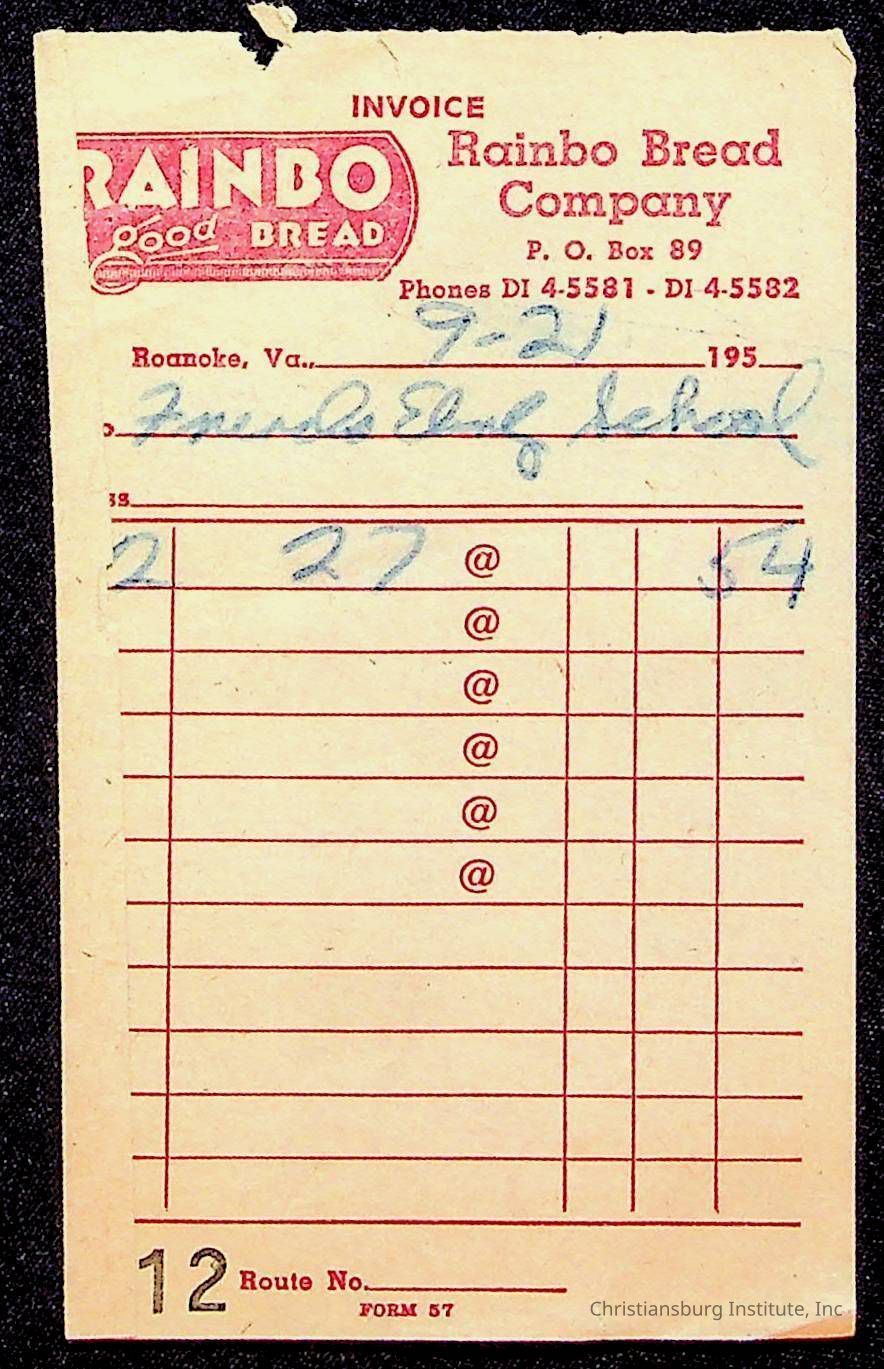 INVOICE
RAINBO
good BREAD
Rainbo Bread
Company
P. O. Box 89
Phones DI 4-5581 - DI 4-5582
9-21
Roanoke, Va., 195
Friends Elem School
ss
2 27 @ 54
@
@
@
@
@
12 Route No.
FORM 57
Christiansburg Institute, Inc